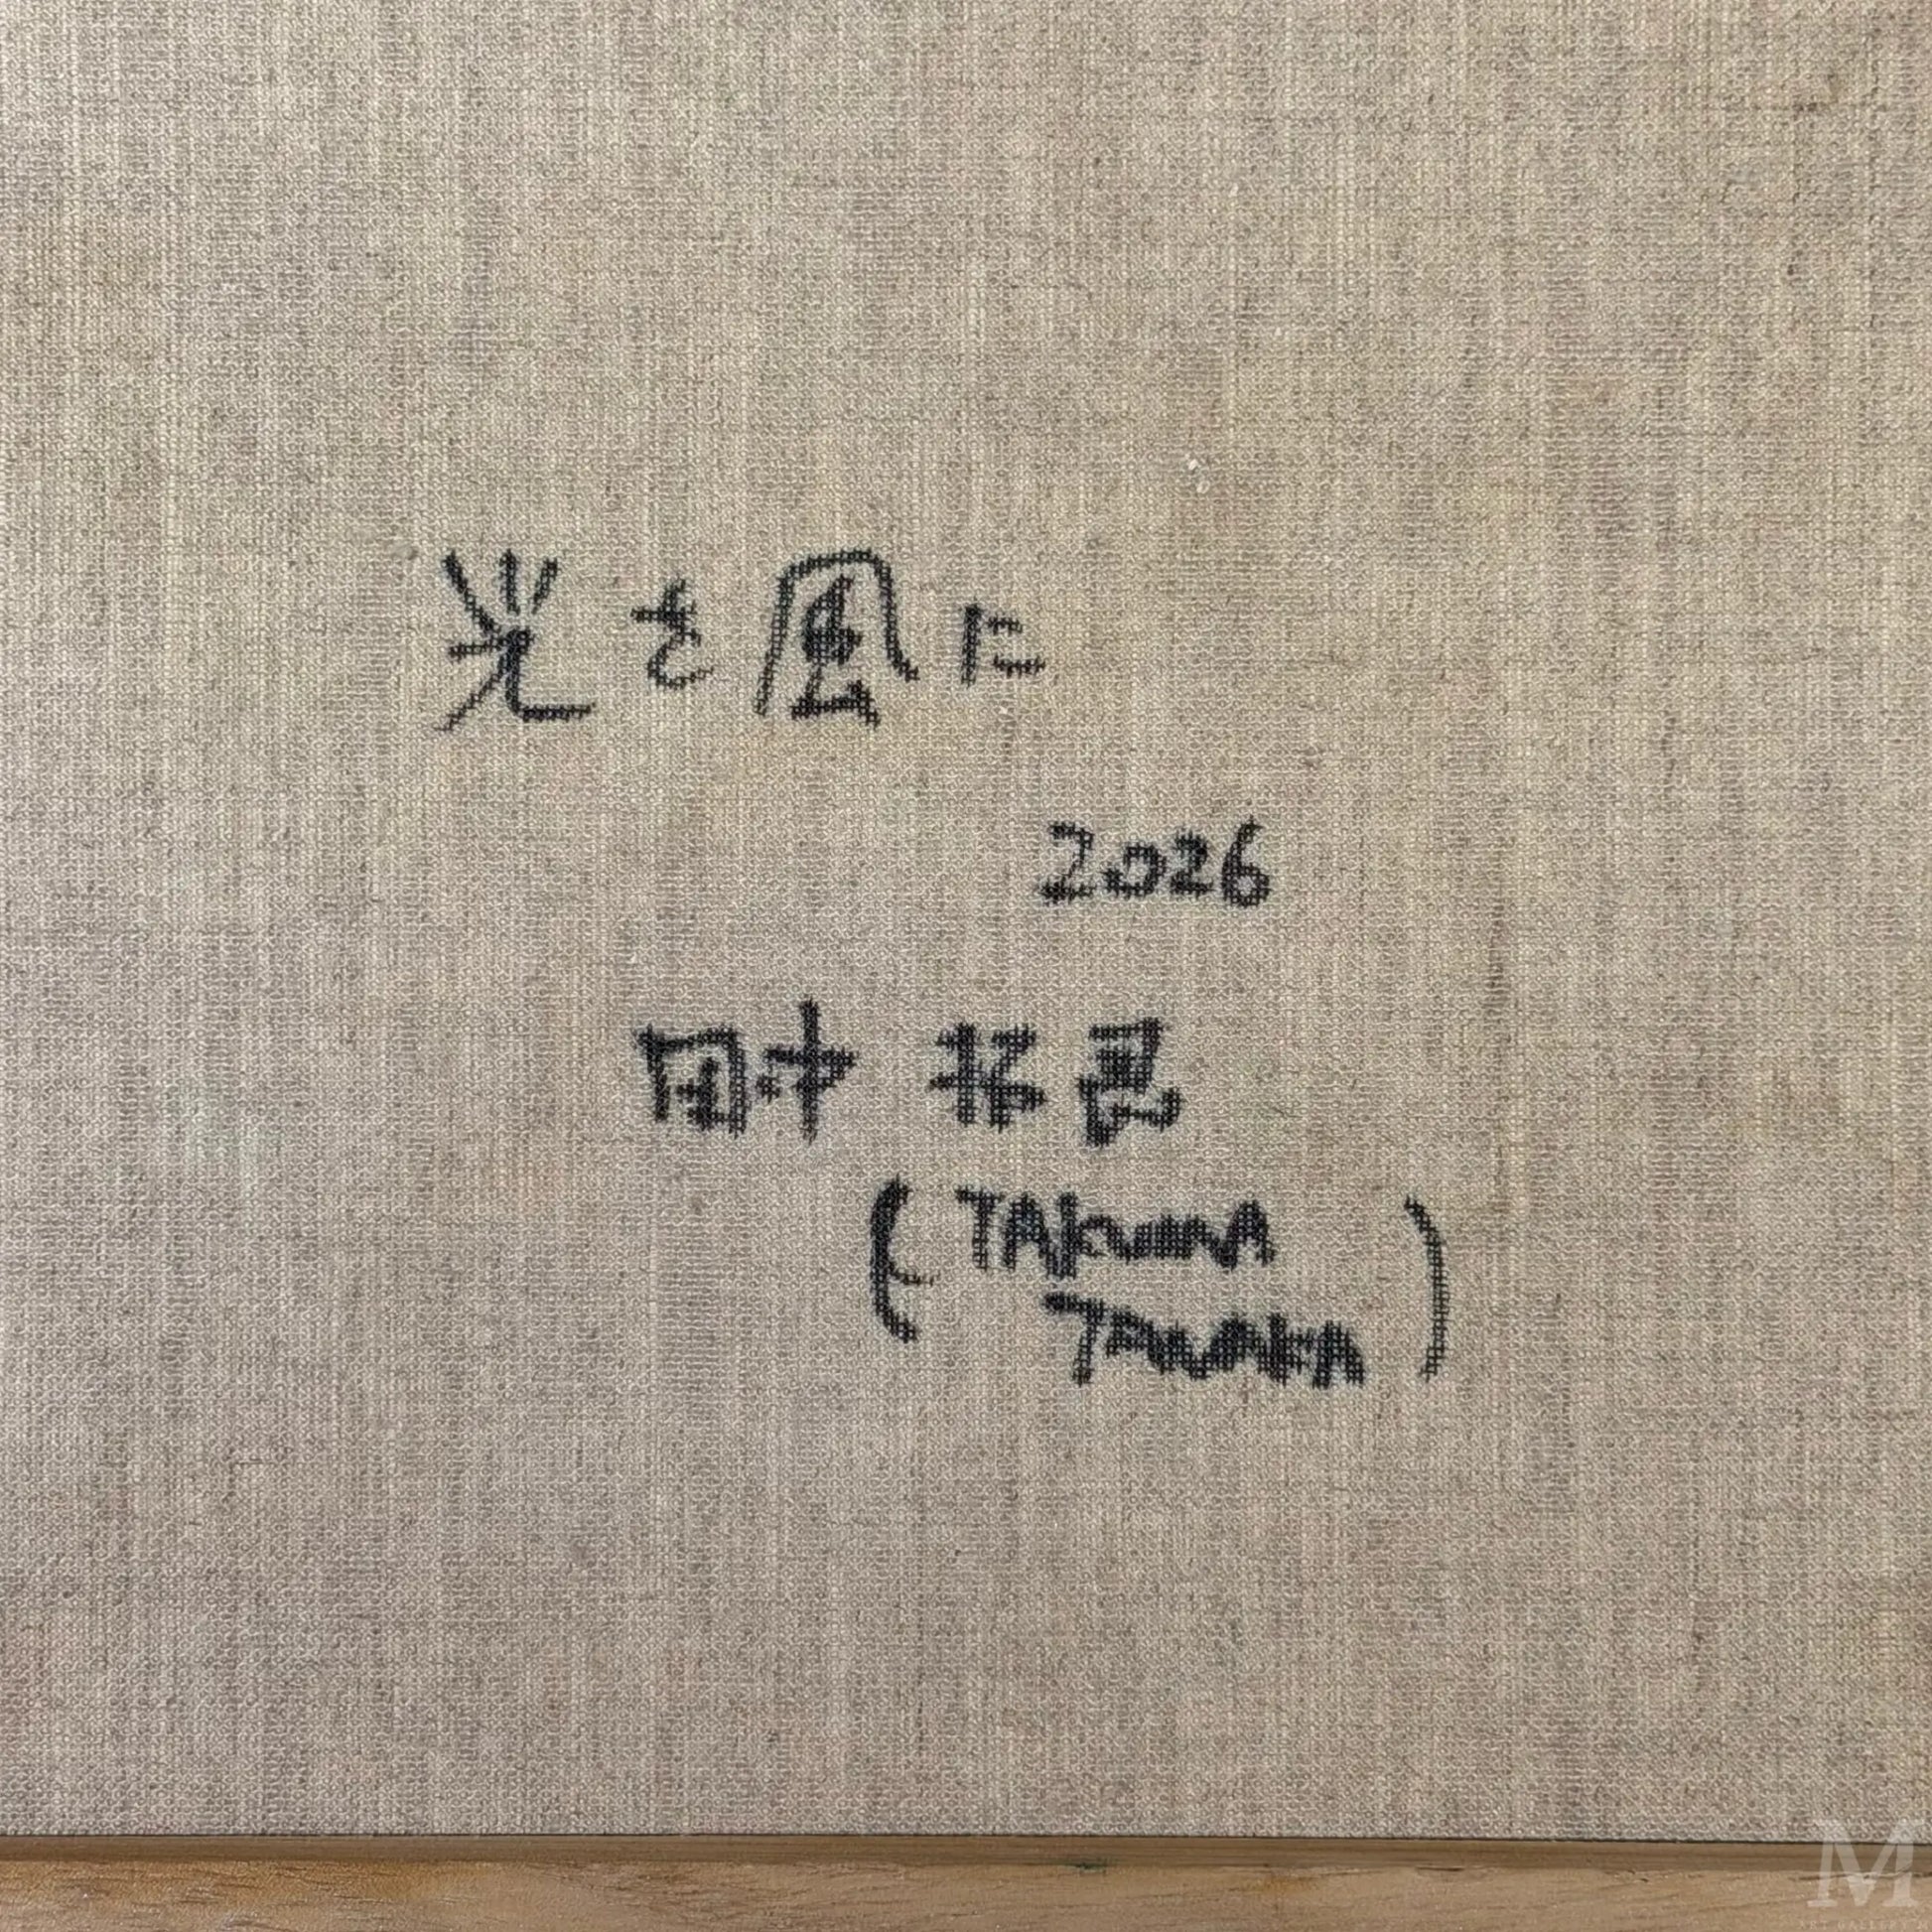 光を風に
2026
田中 拓
(TAKUMA
TANAKA)
M